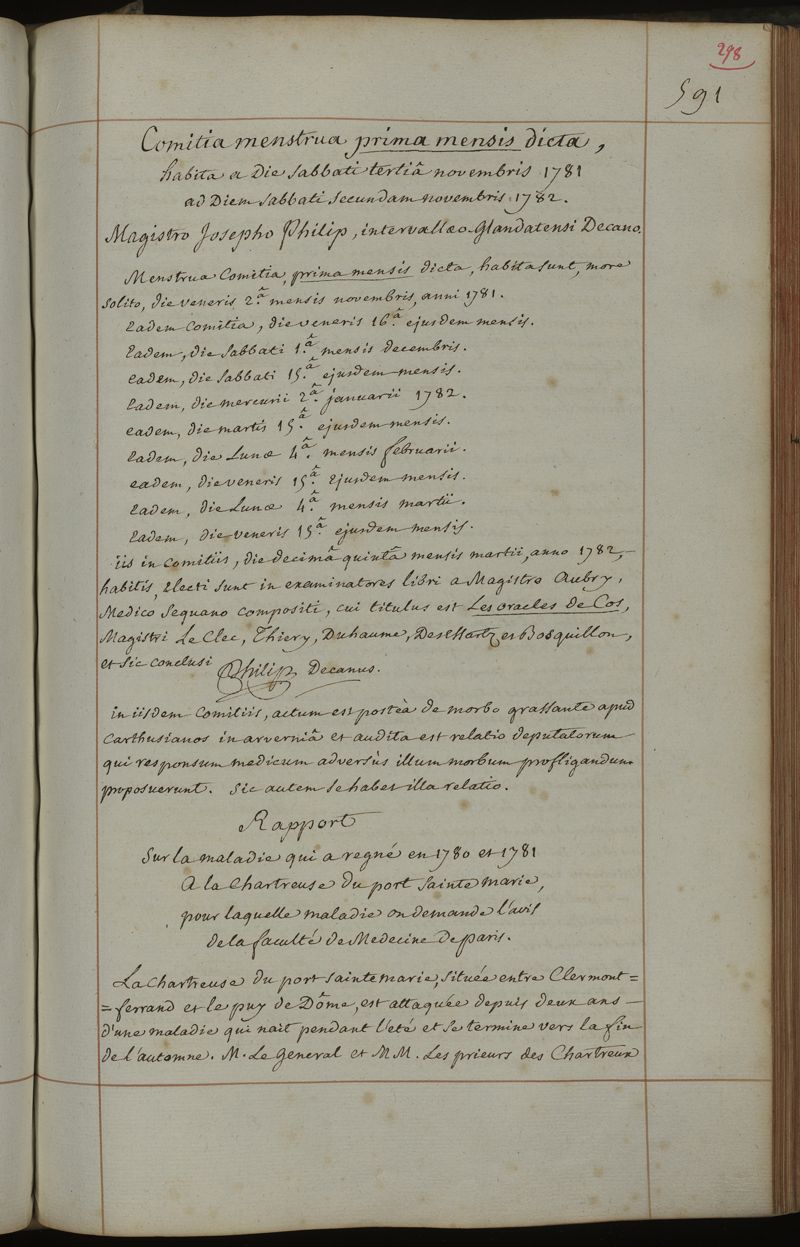 298
591
Comitia menstrua prima mensis dicta,
habita a Die Sabbati tertiâ novembris 1781
ad Diem Sabbati Secundam novembris 1782.
Magistro Josepho Philip, intervallæo-Glandatensi Decano.
Menstrua Comitia, prima mensis dicta, habita sunt, more
Solito, die veneris 2.â mensis novembris, anni 1781.
Eadem Comitia, die veneris 16.â ejusdem mensis.
Eadem, die Sabbati 1.â mensis decembris.
eadem, die Sabbati 15.â ejusdem mensis.
Eadem, die mercurii 2.â januarii 1782.
eadem, die martis 15.â ejusdem mensis.
Eadem, die Lunæ 4.â mensis februarii.
eadem, die veneris 15.â Ejusdem mensis.
Eadem, die Lunæ 4.â mensis martii.
Eadem, die veneris 15.â ejusdem mensis.
iis in Comitiis, die decimâ quintâ mensis martii, anno 1782,
habitis, Electi sunt in examinatores libri a Magistro Aubry,
Medico Sequano compositi, cui titulus est Les oracles de Cos,
Magistri Le Clec, Thiery, Duhaume, DesEssartz et Bosquillon,
et Sic conclusi Philip Decanus.
in iisdem Comitiis, actum est posteà de morbo grassante apud
Carthusianos in arverniâ et audita est relatio deputatorum
qui responsum medicum adversùs illum morbum profligandum
proposuerunt. Sic autem Se habet illa relatio.
Rapport
Sur la maladie qui a regné en 1780 et 1781
A la Chartreuse du port Sainte marie,
pour laquelle maladie on demande l'avis
de la faculté de Medecine de paris.
La Chartreuse du port Sainte marie, située entre Clermont=
=ferrand et le puy de Dôme, est attaquée depuis deux ans
d'une maladie qui nait pendant l'eté et Se termine vers la fin
de l'automne. M. Le General et MM. Les prieurs des Chartreux